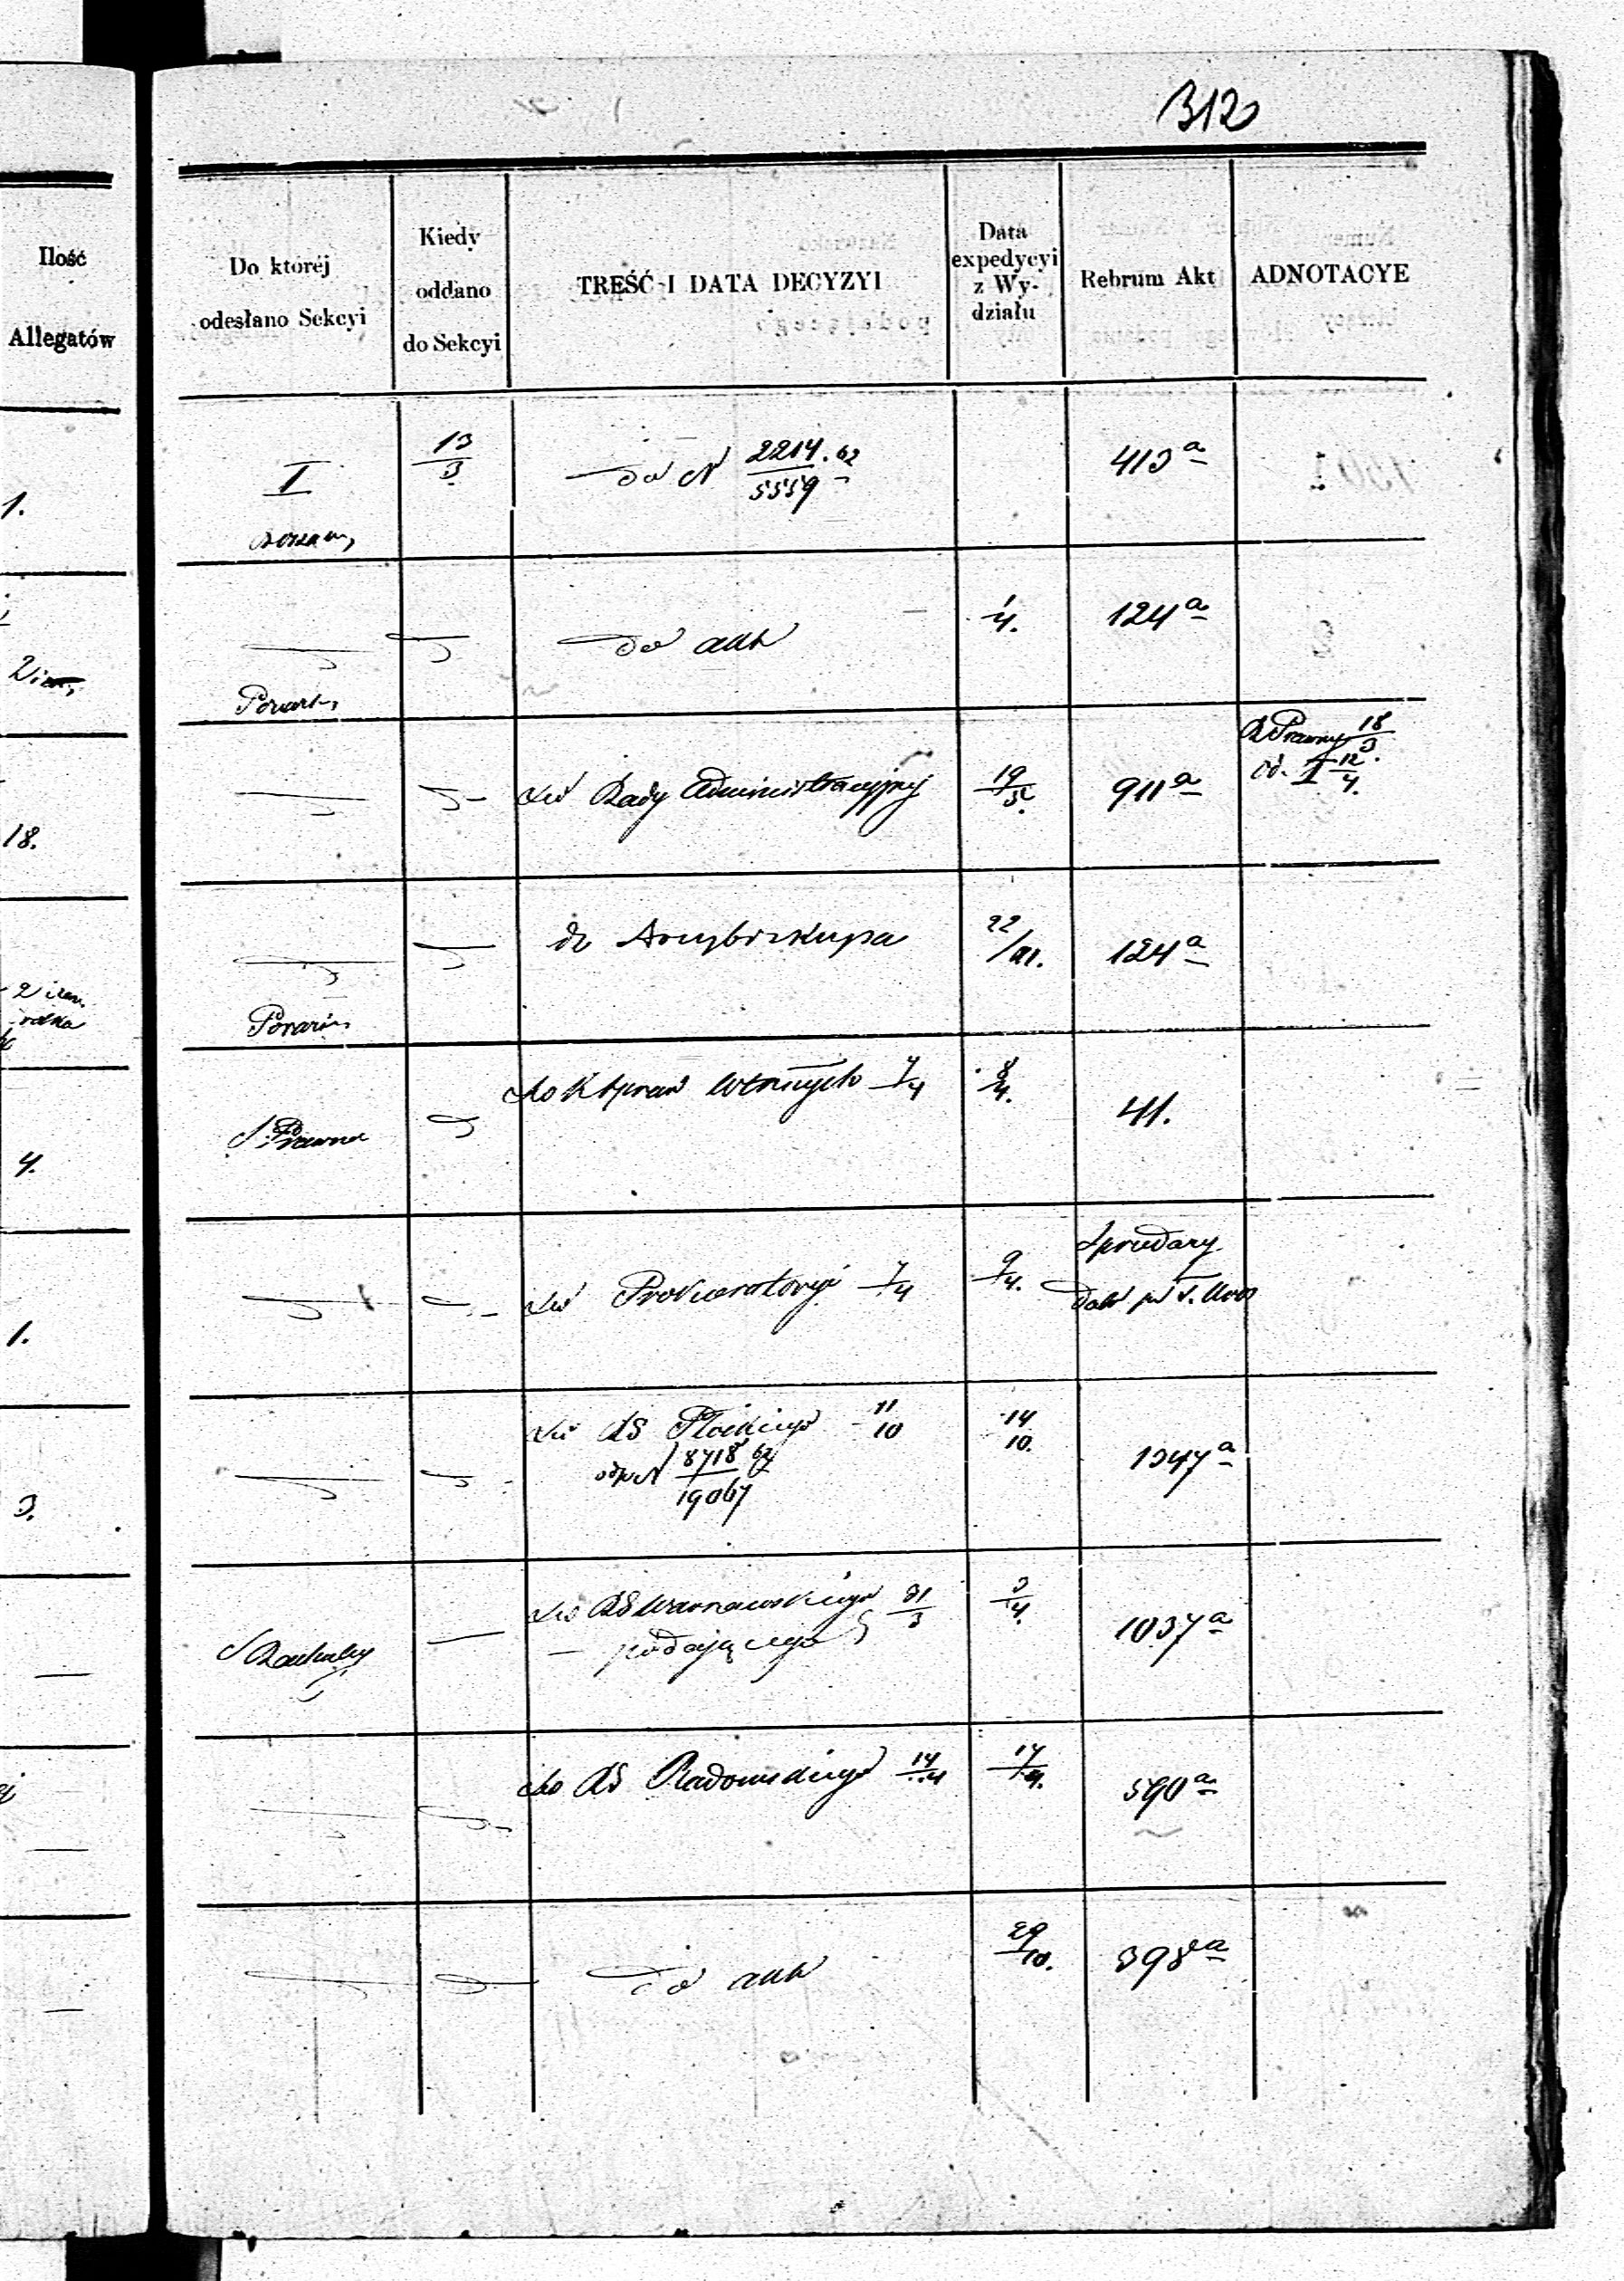 312
Ilość
Allegatów
Do której
odesłano Sekcyi
Kiedy
oddano
do Sekcyi
TREŚĆ I DATA DECYZYI
Data
expedycyi
z Wy-
działu
Rebrum Akt
ADNOTACYE
1.
I
13/3
do N 2214.62/5559
413 a
do akt
1/4.
124 a
18.
do Rady Administracyjnej
19/5.
911 a
R Prawny 18/3
od. I 12/4.
do Arcybiskupa
22/
124 a
4.
S Prawna
do K Spraw 7/4
8/4.
41.
1.
do Prokuratoryi 7/4
9/4.
Sprzedaży
3.
do RG Płockiego 11/10
N 8718 62/19067
14/10.
1347 a
S Rachuby
do RG Warszawskiego 31/3
podającego
3/4.
1037 a
do RG Radomskiego 14/4
17/4.
590 a
do akt
29/10.
398 a